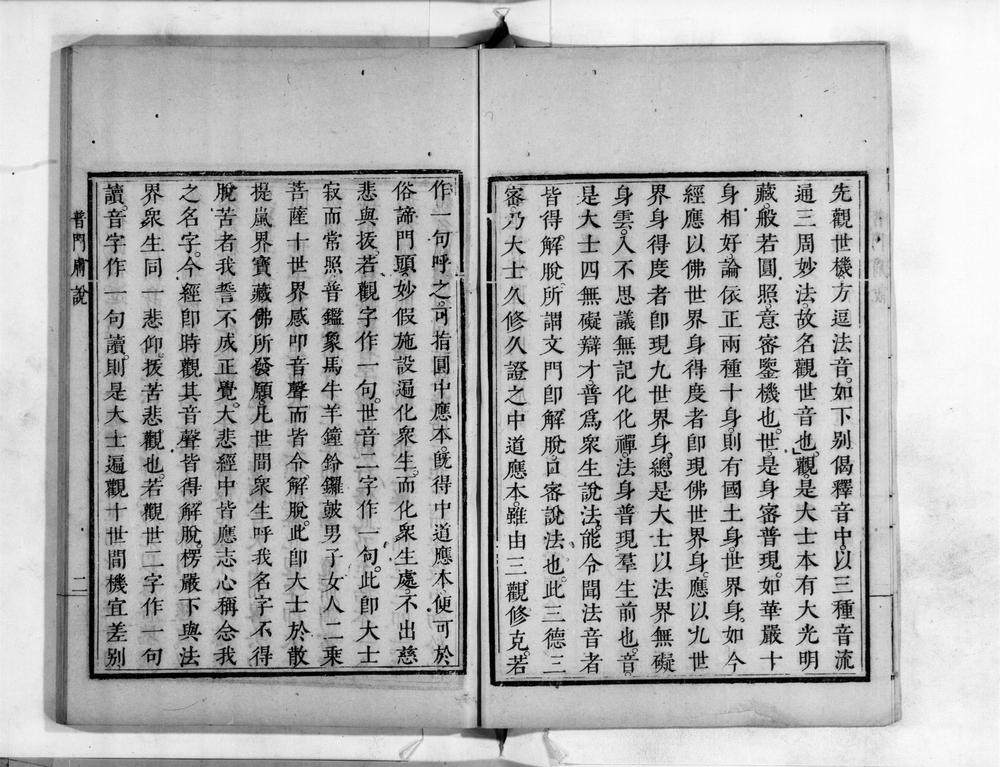 先觀世機方逗法音。如下別偈釋音中。以三種音流
通三周妙法。故名觀世音也。觀。是大士本有大光明
藏。般若圓照。意密鑒機也。世。是身密普現。如華嚴十
身相好。論依正兩種十身。則有國土身。世界身。如今
經應以佛世界身得度者卽現佛世界身。應以九世
界身得度者卽現九世界身。總是大士以法界無礙
身雲。入不思議無記化化禪。法身普現羣生前也。音。
是大士四無礙辯才普爲衆生說法。能令聞法音者
皆得解脫。所謂文門卽解脫。口密說法也。此三德三
密。乃大士久修久證之中道應本。雖由三觀修克。若
作一句呼之。可指圓中應本。旣得中道應本。便可於
俗諦門頭。妙假施設。遍化衆生。而化衆生處。不出慈
悲與拔。若觀字作一句。世音二字作一句。此卽大士
寂而常照。普鑑象馬牛羊鐘鈴鑼皷男子女人二乘
菩薩十世界感叩音聲而皆令解脫。此卽大士於散
提嵐界寶藏佛所發願。凡世間衆生呼我名字不得
脫苦者我誓不成正覺。大悲經中皆應志心稱念我
之名字。今經卽時觀其音聲皆得解脫。楞嚴下與法
界衆生同一悲仰。拔苦悲觀也。若觀世二字作一句
讀。音字作一句讀。則是大士遍觀十世間機宜差別
普門膚說
二